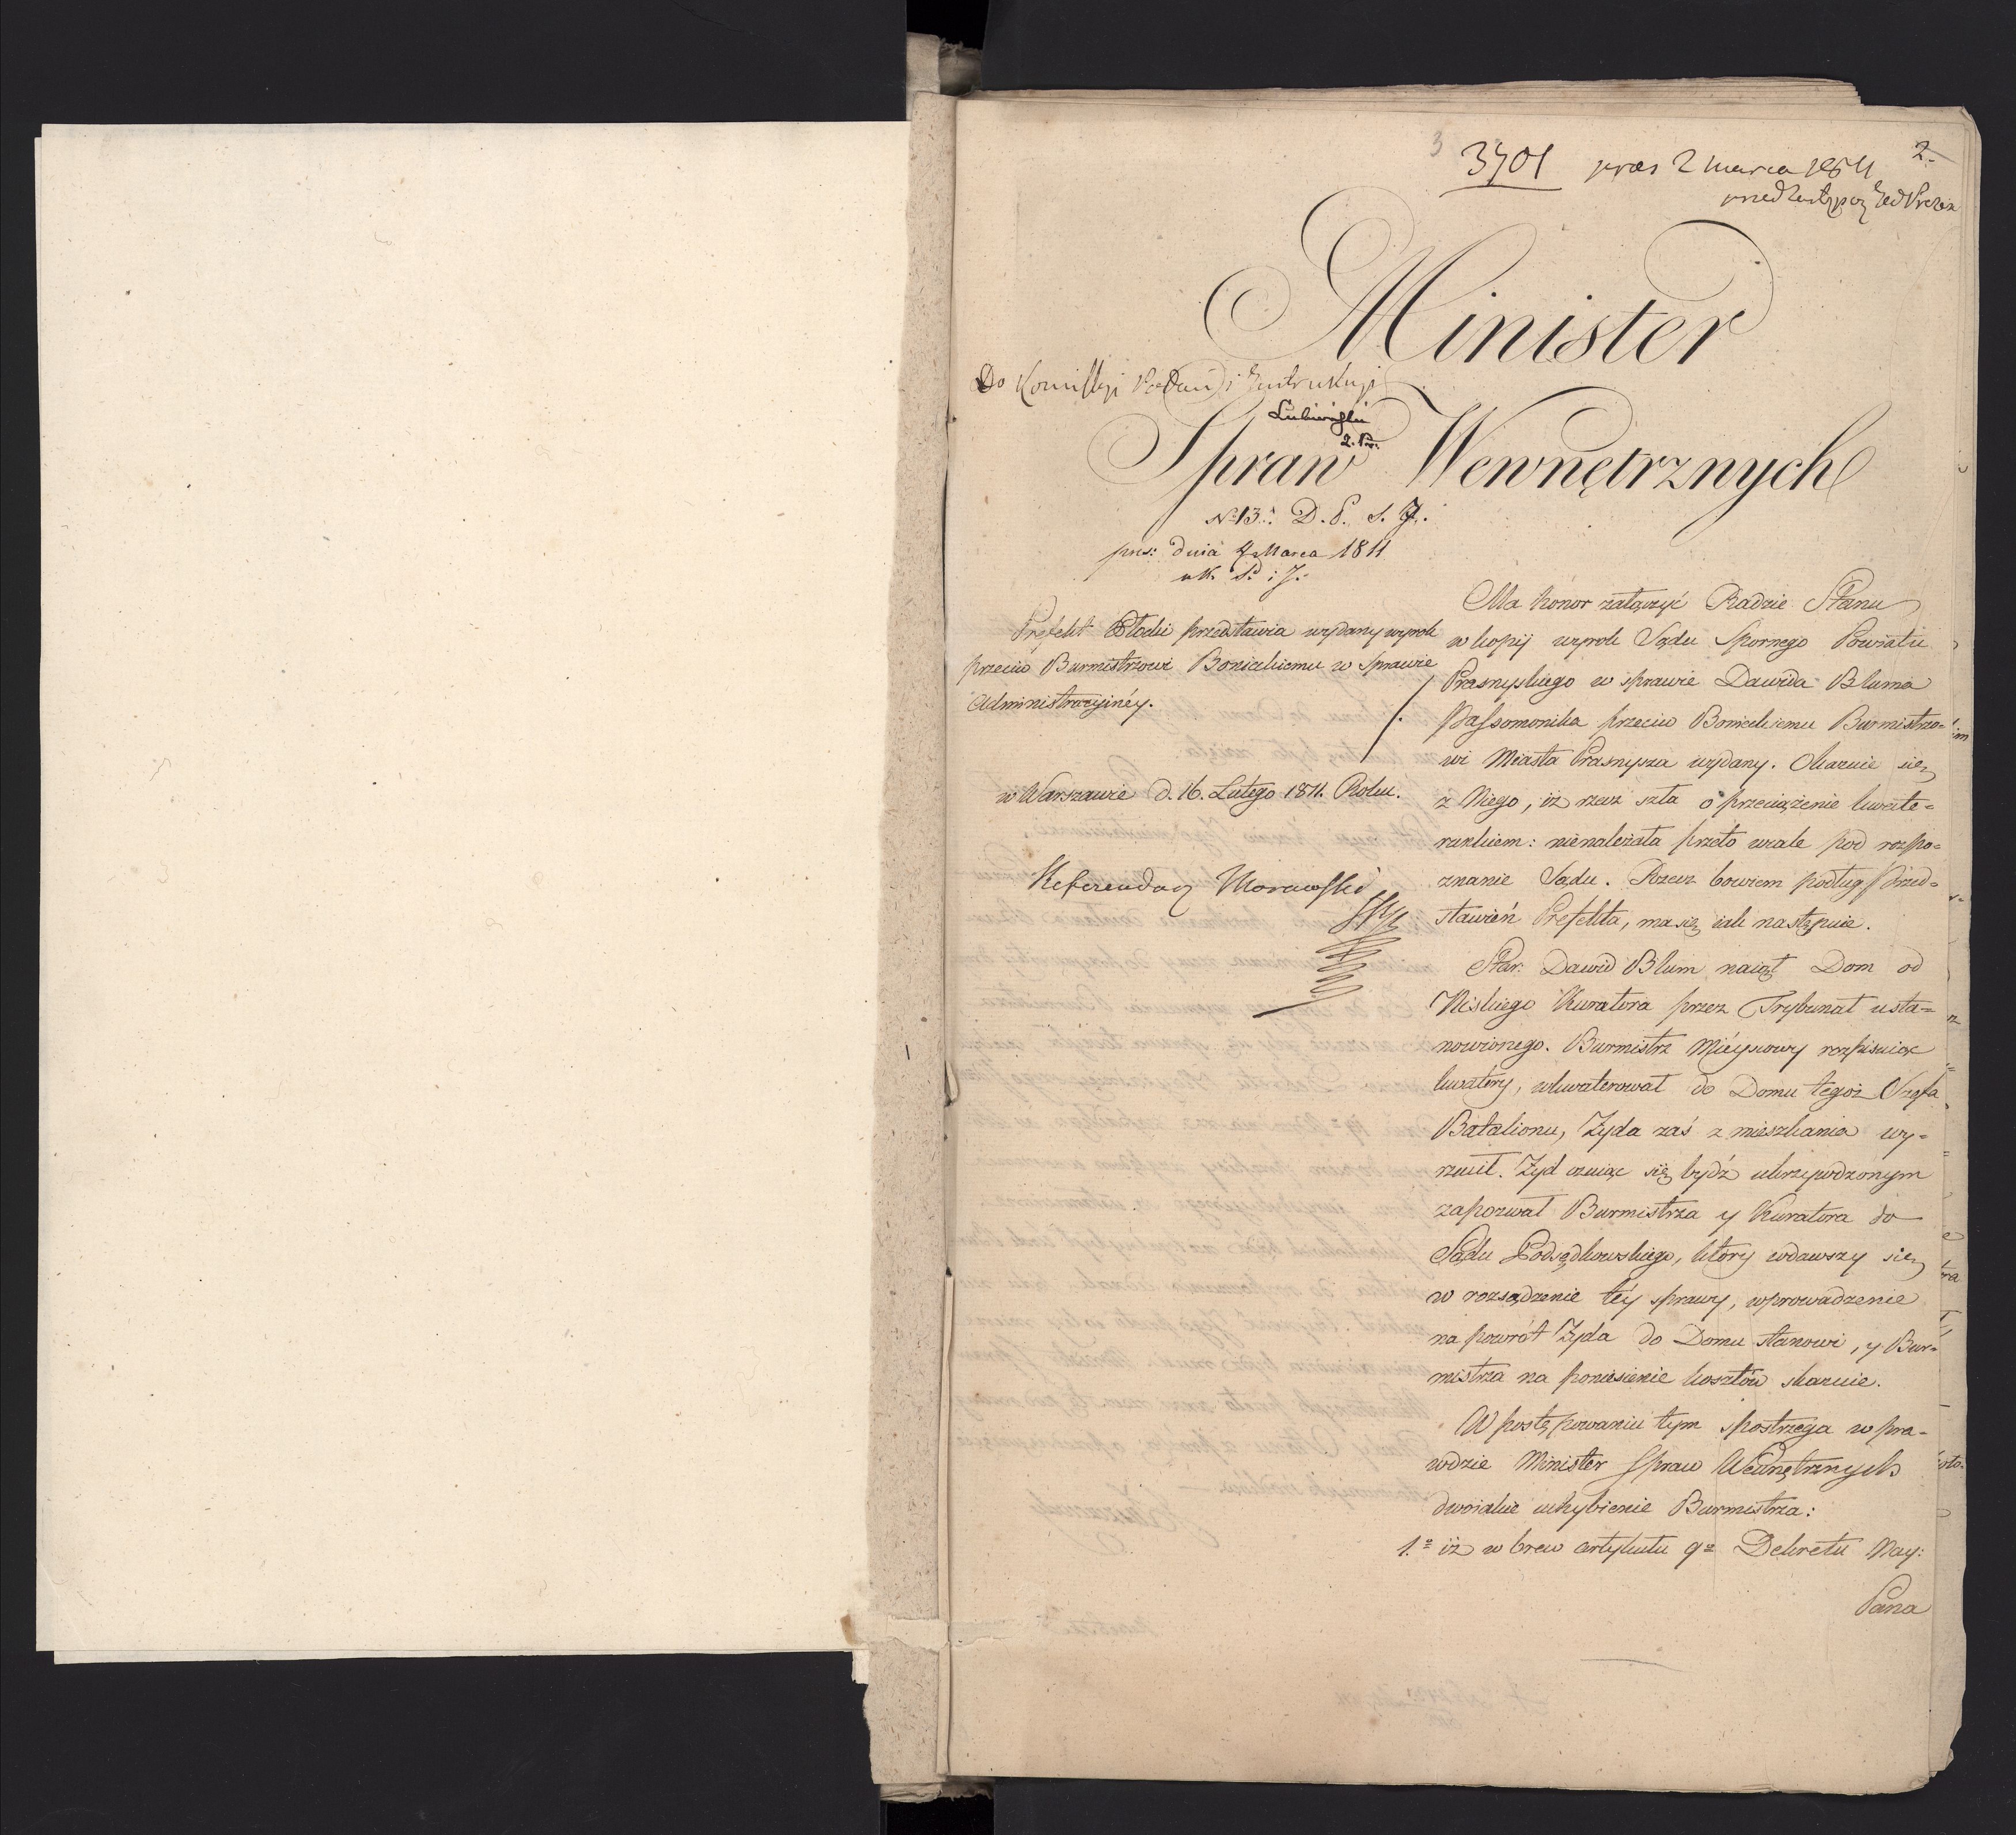 3
3701 pres 2 marca 1811 2.
Minister
Do Komissyi Podań i Instrukcyi
Lubieński
2. Pr.
Spraw Wewnętrznych
No 13. D. P. i. J.
pres: dnia 4 Marca 1811
w K. P. i J.
Prefekt Płocki przedstawia wydany wyrok
przeciw Burmistrzowi Bonieckiemu w Sprawie
Administracyiney.
w Warszawie d. 16. Lutego 1811. Roku.
Referendarz Morawski
Ma honor załączyć Radzie Stanu
w kopij wyrok Sądu Spornego Powiatu
Prasnyskiego w sprawie Dawida Bluma
Passomonika przeciw Bonieckiemu Burmistrzo=
wi Miasta Prasnysza wydany. Okazuie się
z Niego, iż rzecz szła o przeciążenie kwate=
runkiem: nienależała przeto wcale pod rozpo=
znanie Sądu. Rzecz bowiem podług Przed=
stawień Prefekta, ma się iak następuie.
Star: Dawid Blum naiął Dom od
Niskiego Kuratora przez Trybunał usta=
nowionego. Burmistrz Mieyscowy rozpisuiąc
kwatery, wkwaterował do Domu tegoż Szefa
Batalionu, Żyda zaś z mieszkania wy=
rzucił. Żyd czuiąc się bydź ukrzywdzonym
zapozwał Burmistrza y Kuratora do
Sądu Podsędkowskiego, który wdawszy się
w rozsądzenie téy sprawy, wprowadzenie
na powrót Żyda do Domu stanowi, y Bur=
mistrza na poniesienie kosztów skazuie.
W postępowaniu tym spostrzega w pra=
wdzie Minister Spraw Wewnętrznych
dwoiakie uchybienie Burmistrza:
1.o iż w brew artykułu 9o Dekretu Nay:
Pana